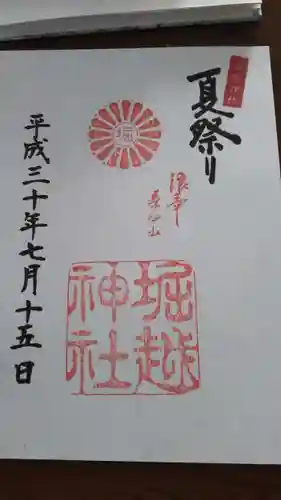 夏祭り
浪華
堀越
神社
平成三十年七月十五日